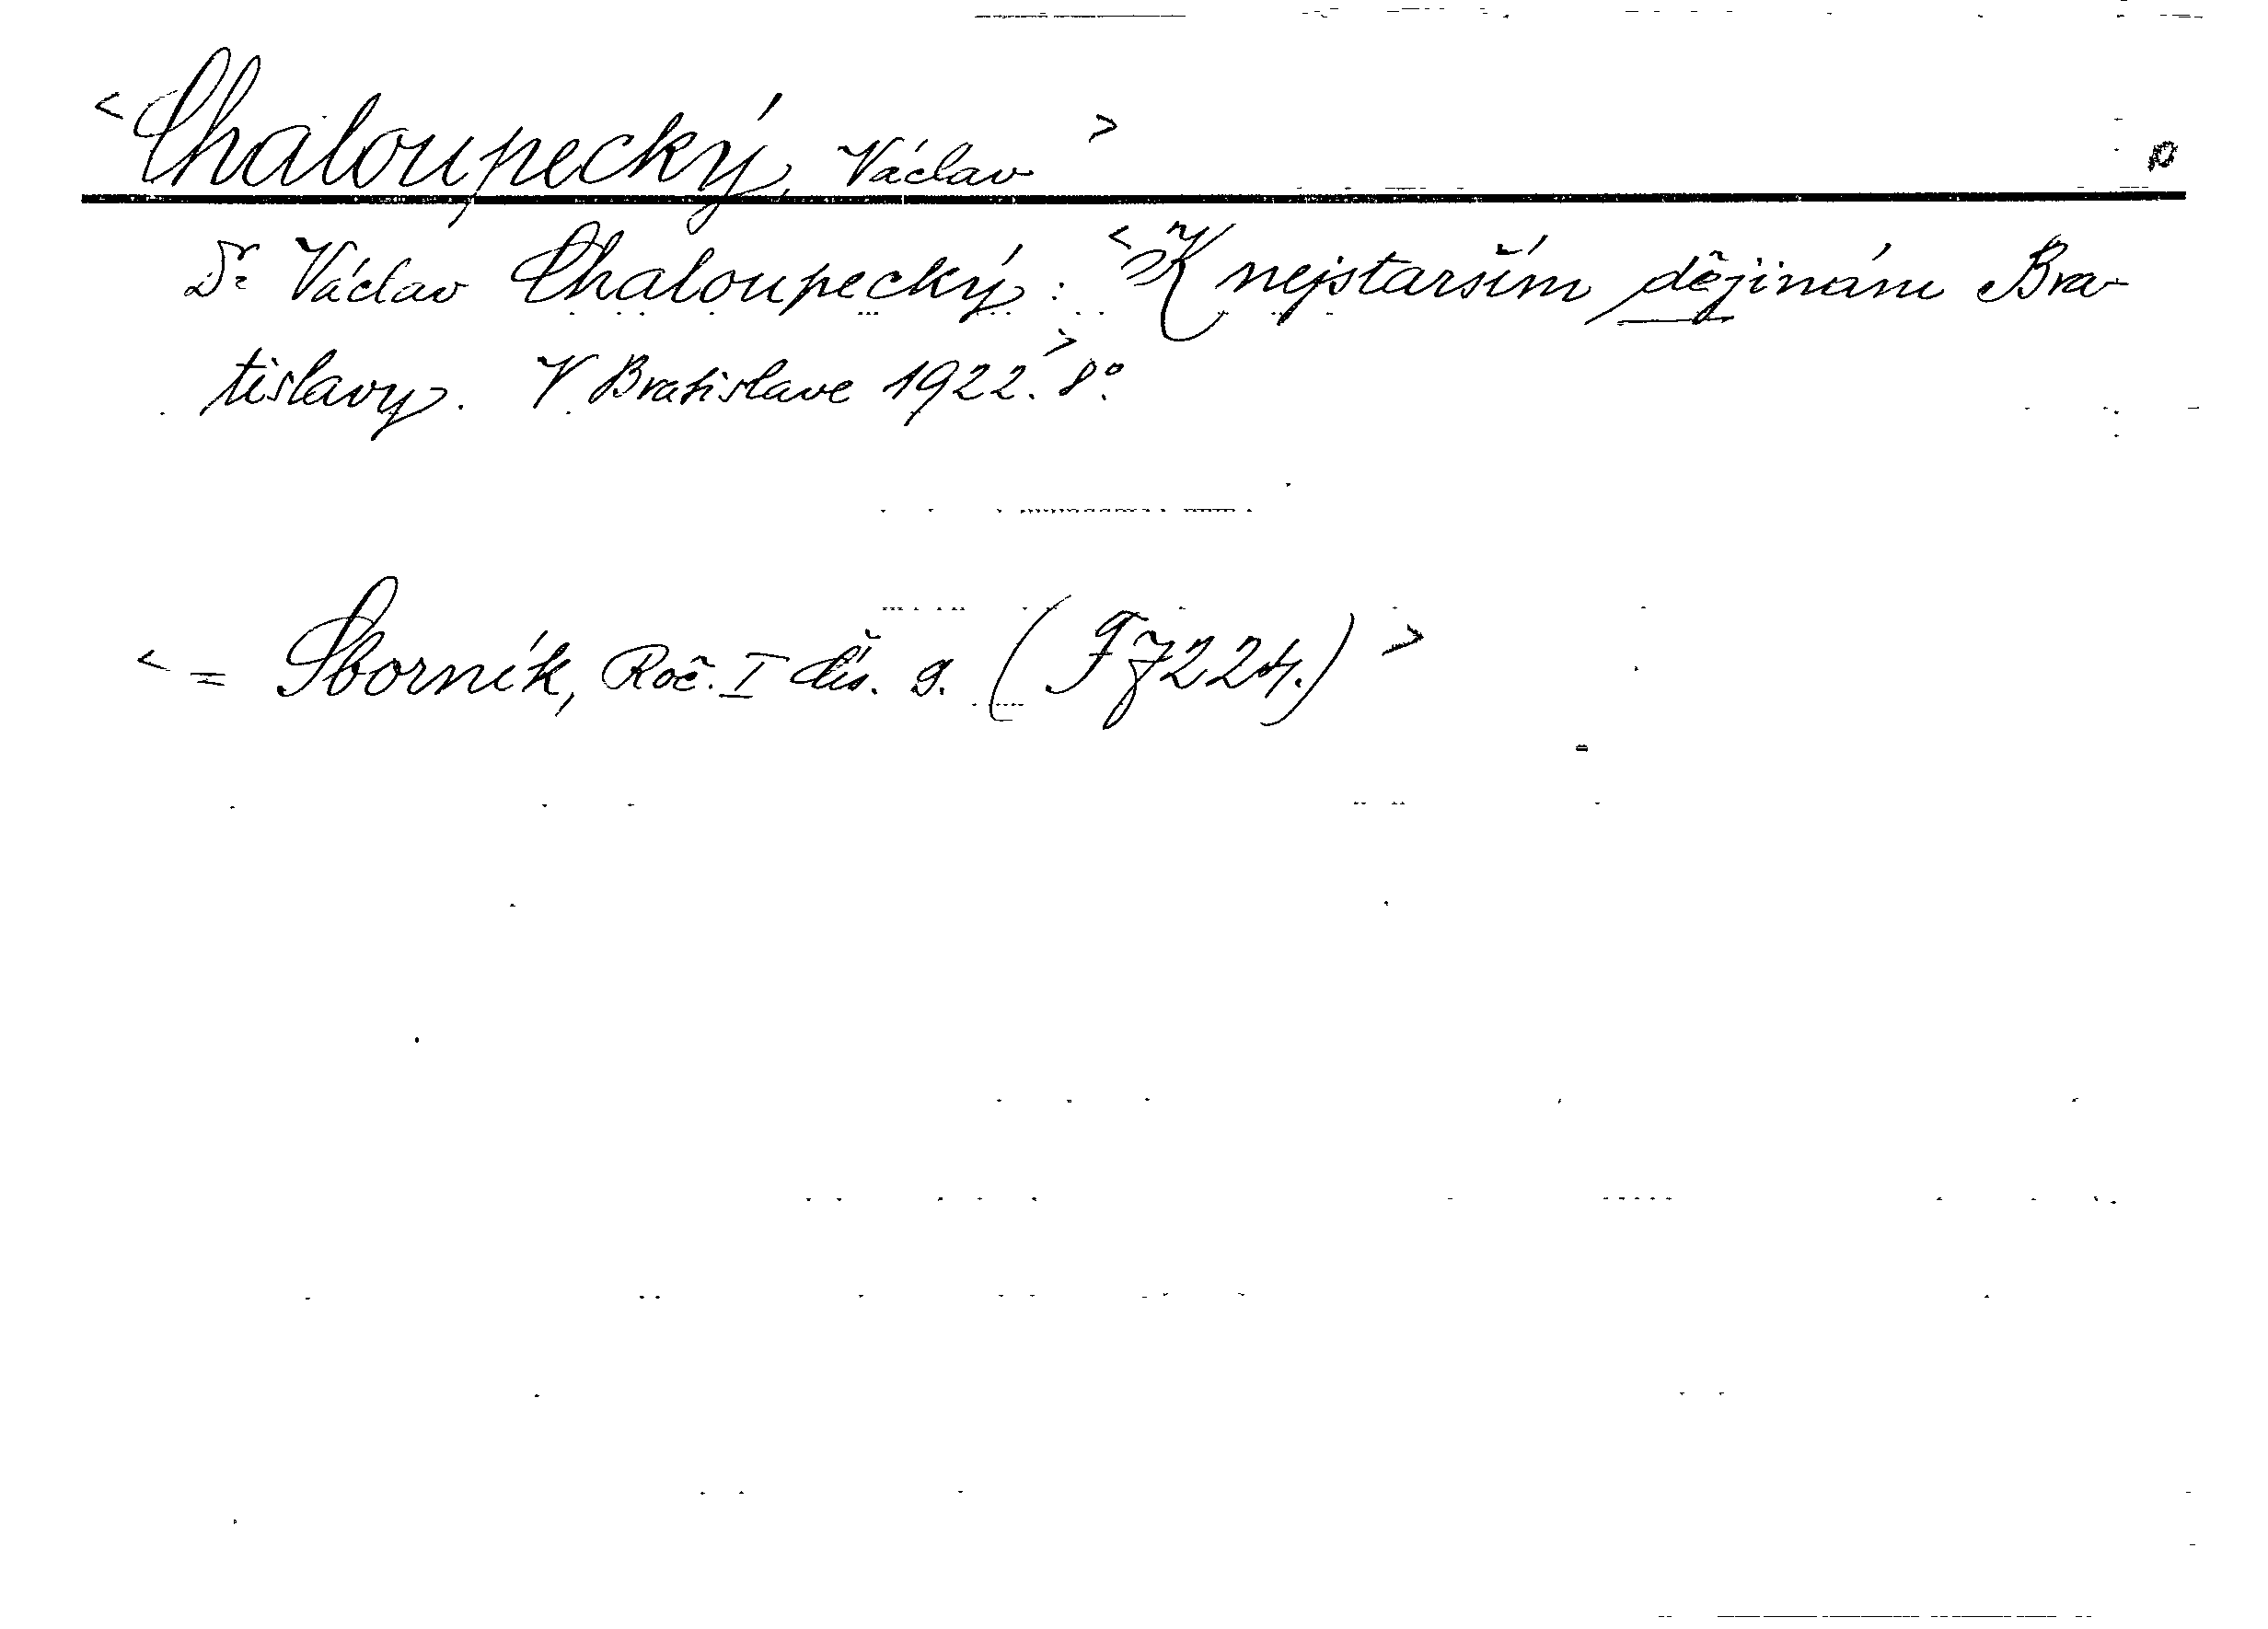 <Chaloupecký, Václav> p
Dr Václav Chaloupecký: <K nejstarším dějinám Bra-
tislavy. V Bratislave 1922.> 8°.
<= Sborník, Roč. I čís. 9. (F 7224.)>